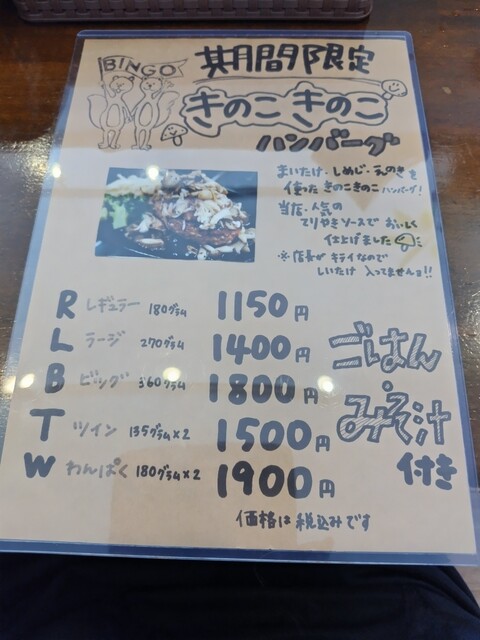 BINGO
期間限定
きのこきのこ
ハンバーグ
まいたけ・しめじ・えのきを
使ったきのこきのこハンバーグ!
当店・人気の
てりやきソースでおいしく
仕上げました
※店長がキライなので
しいたけ入ってませんヨ!!
R レギュラー 180グラム 1150円
L ラージ 270グラム 1400円
B ビッグ 360グラム 1800円
T ツイン 135グラム×2 1500円
W わんぱく 180グラム×2 1900円
ごはん
みそ汁
付き
価格は税込みです